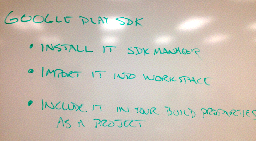 GOOGLE PLAY SDK
• INSTALL IT SDK MANAGER
• IMPORT IT INTO WORKSPACE
• INCLUDE IT IN YOUR BUILD PROPERTIES
AS A PROJECT